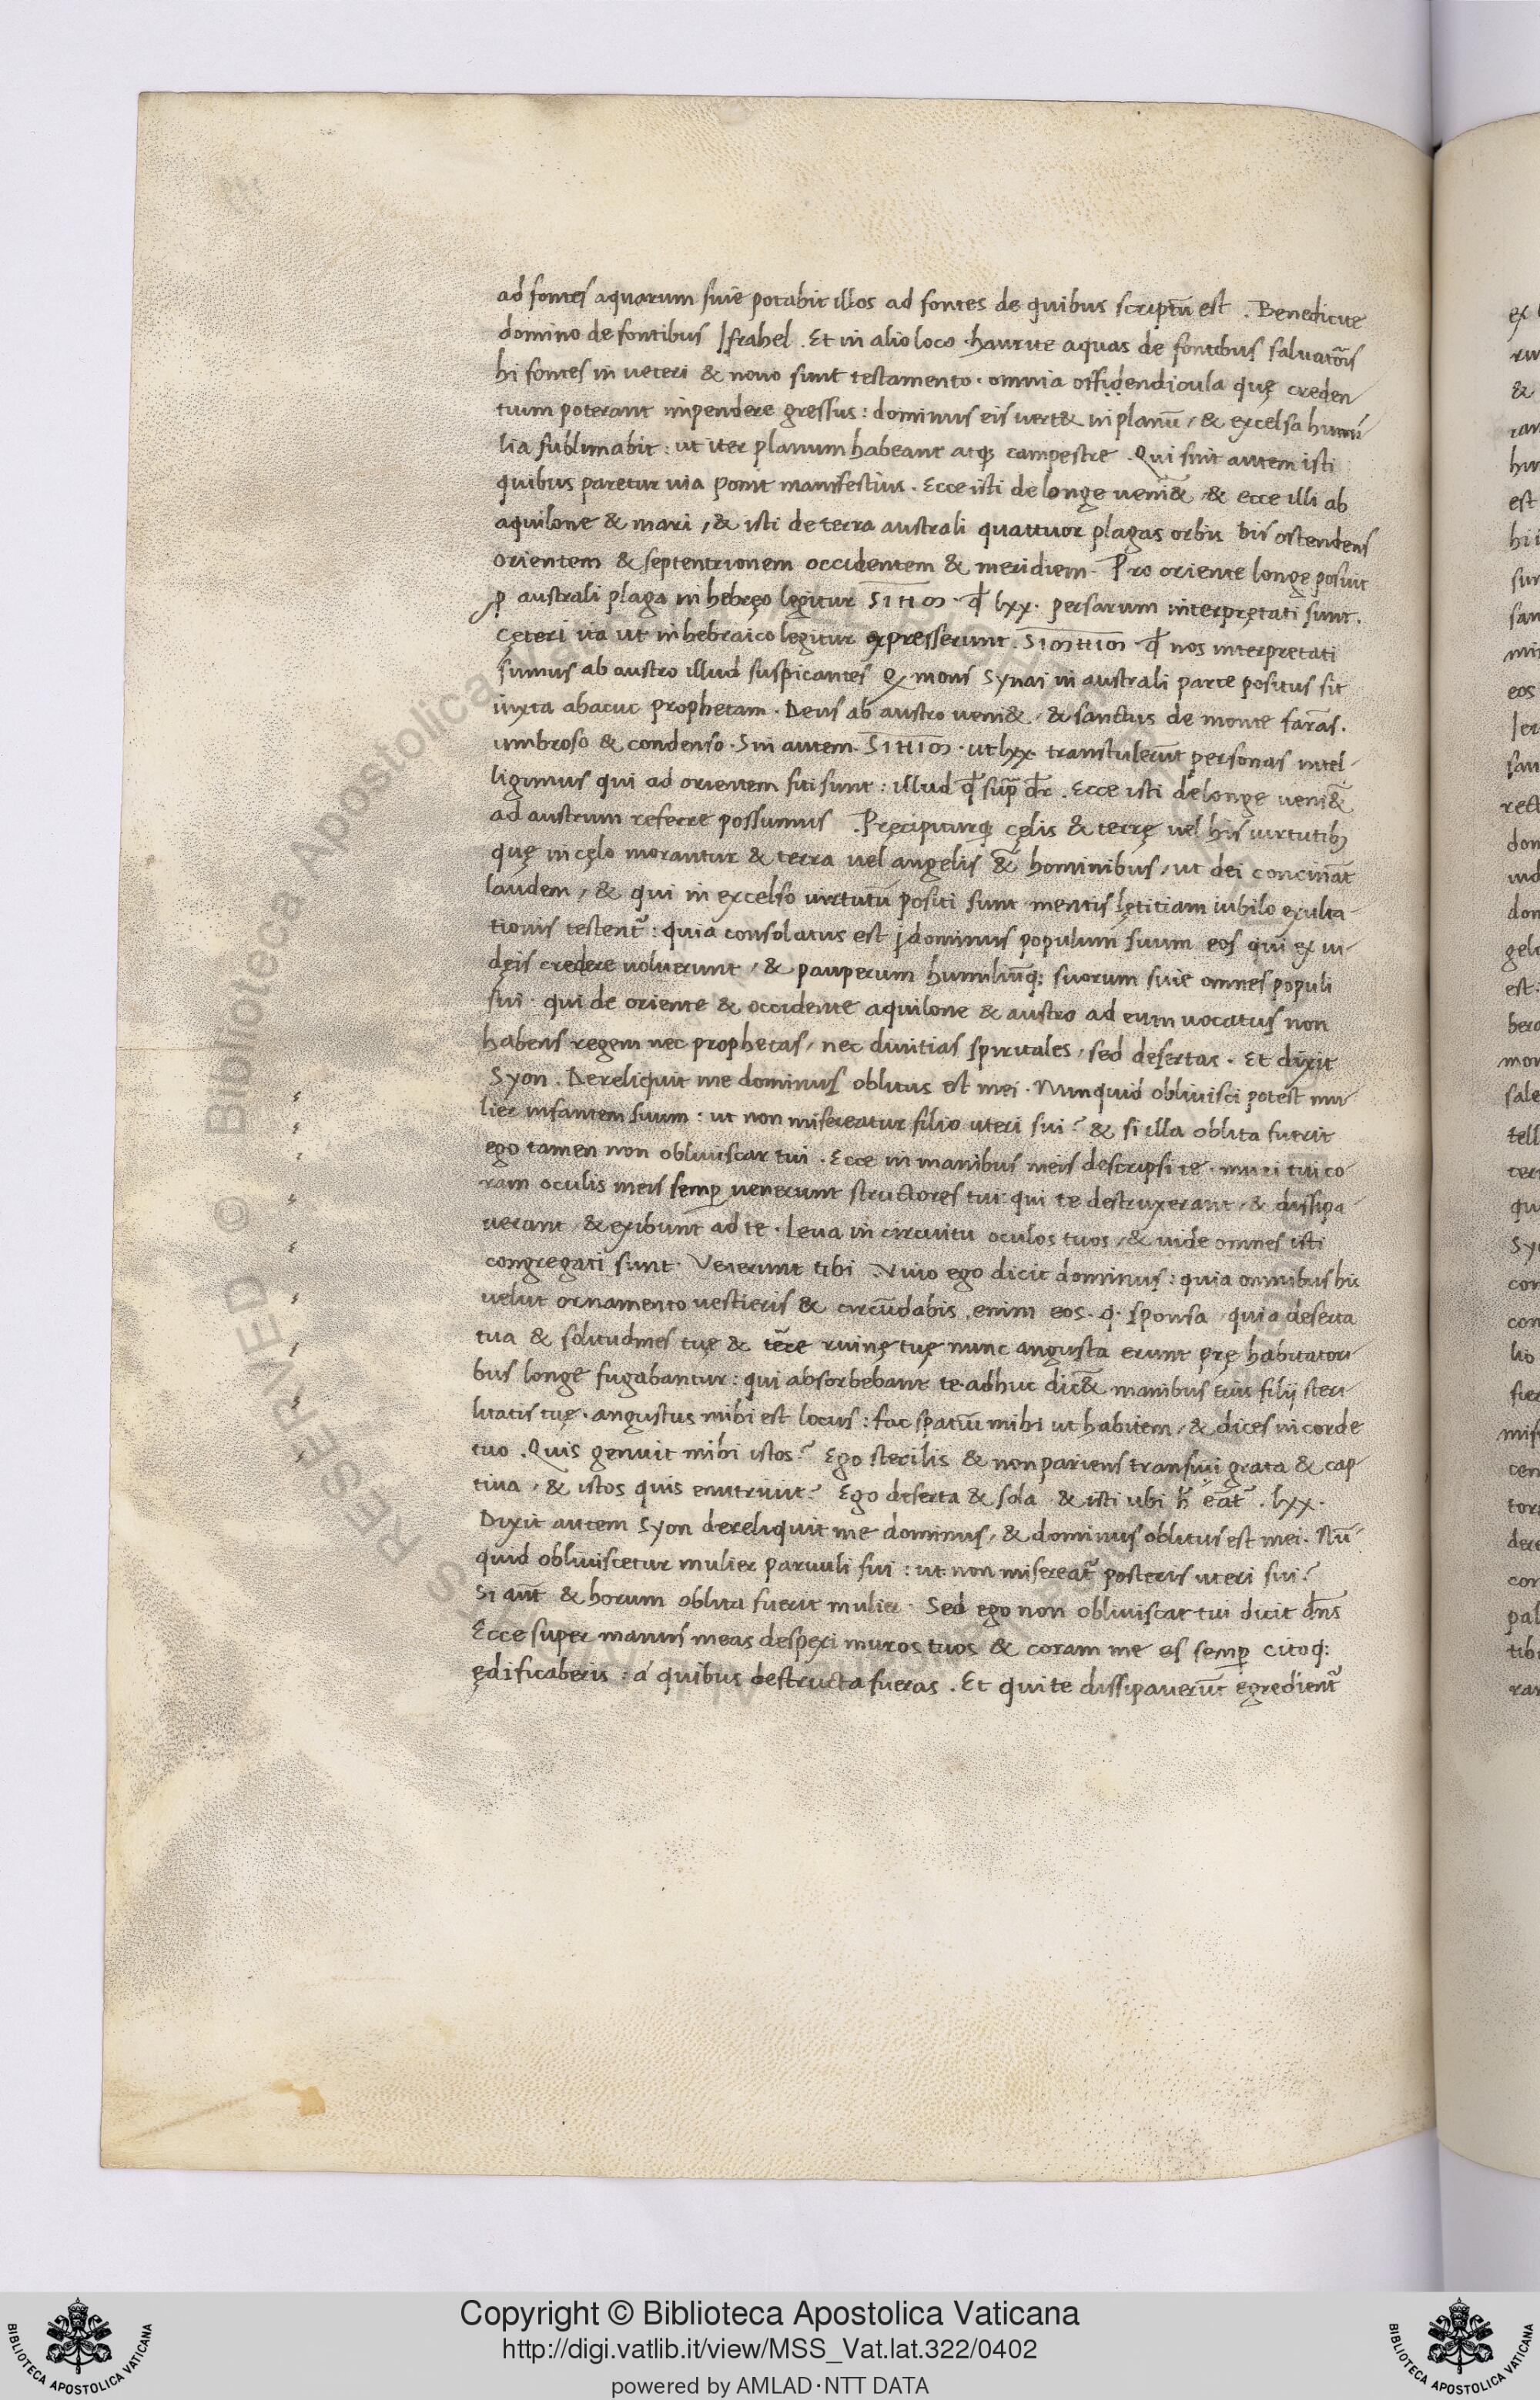 ad fontes aquarum siue potabit illos ad fontes de quibus scriptū est . Benedicite
domino de fontibus Israhel . Et in alio loco · haurite aquas de fontibus saluatōis
hi fontes in ueteri & nouo sunt testamento · omnia offidendicula quę creden
tium poterant inpendere gressus : dominus eis uert& in planū , & excelsa humi
lia sublimabit : ut iter planum habeant atq; campestre . Qui sint autem isti
quibus paretur uia ponit manifestius . Ecce isti de longe ueni& , & ecce illi ab
aquilone & mari , & isti de terra australi quattuor plagas orbis bis ostendens
orientem & septentrionem occidentem & meridiem · Pro oriente longe posuit
ꝓ australi plaga in hebręo legitur · qđ lxx · persarum interpretati sunt .
Cęteri ita ut in hebraico legitur expresserunt . · qđ nos interpretati
sumus ab austro illud suspicantes ꝙ mons Synai in australi parte positus sit
iuxta abacuc prophetam · Deus ab austro ueni& , & sanctus de monte farās .
umbroso & condenso · Sin autem · ut lxx transtulerūt personas intel-
ligimus qui ad orientem siti sunt : illud qđ sup̄ dr̄ . Ecce isti de longe ueni&
ad austrum referre possumus . Pręcipiturq; cęlis & terrę uel his uirtutib;
quę in cęlo morantur & terra uel angelis & hominibus , ut dei concināt
laudem , & qui in excelso uirtutū positi sunt mentis lętitiam iubilo exulta-
tionis testent̄ : quia consolatus est dominus populum suum eos qui ex iu-
dęis credere uoluerunt , & pauperum humiliūq; suorum siue omnes populi
sui · qui de oriente & occidente aquilone & austro ad eum uocatus non
habens regem nec prophetas , nec diuitias spirituales , sed desertas . Et dixit
Syon . Dereliquit me dominus oblitus est mei . Nunquid obliuisci potest mu-
lier infantem suum : ut non misereatur filio uteri sui ? & si illa oblita fuerit
ego tamen non obliuiscar tui . Ecce in manibus meis descripsi te · muri tui co-
ram oculis meis semp̄ uenerunt structores tui qui te destruxerant , & dissipa-
uerant , & exibunt ad te . Leua in circuitu oculos tuos , & uide omnes isti
congregati sunt · Venerunt tibi . Viuo ego dicit dominus : quia omnibus his
uelut ornamento uestieris & circūdabis enim eos . q · sponsa quia deserta
tua & solitudines tuę & terre ruinę tuę nunc angusta erunt prę habitatori-
bus longe fugabantur : qui absorbebant te · adhuc dic& manibus tuis filij steri-
litatis tuę . angustus mihi est locus : fac spatiū mihi ut habitem , & dices in corde
tuo . Quis genuit mihi istos ? Ego sterilis & non pariens transmigrata & cap-
tiua , & istos quis enutriuit ? Ego deserta & sola & isti ubi h̄ erāt . lxx .
Dixit autem Syon dereliquit me dominus , & dominus oblitus est mei . Nū-
quid obliuiscetur mulier paruuli sui : ut non misereat̄ posteris uteri sui ?
Si aūt & horum oblita fuerit mulier . Sed ego non obliuiscar tui dicit dn̄s
Ecce super manus meas despexi muros tuos & coram me es semp̄ citoq;
ędificaberis : á quibus destructa fueras . Et qui te dissipauerūt egredient̄
RESERVED © Biblioteca Apostolica
Copyright © Biblioteca Apostolica Vaticana
http://digi.vatlib.it/view/MSS_Vat.lat.322/0402
powered by AMLAD·NTT DATA
BIBLIOTECA APOSTOLICA VATICANA
BIBLIOTECA APOSTOLICA VATICANA